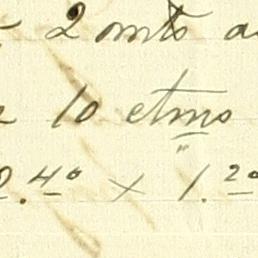 2 mts
10 ctms
.40 x 1.20